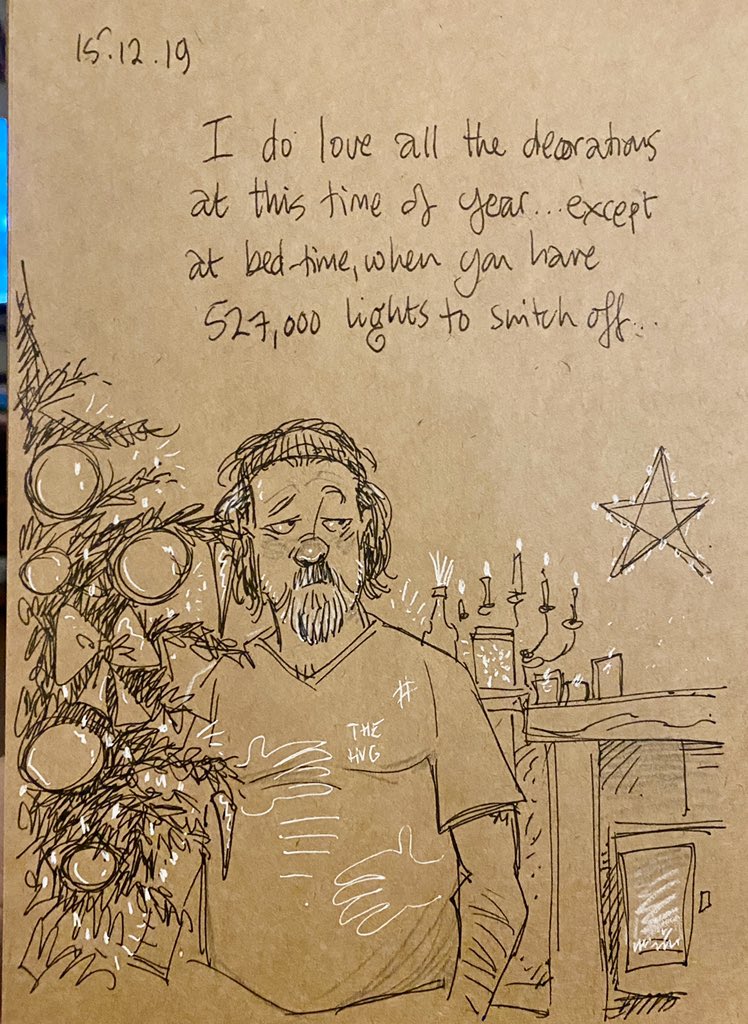 15.12.19
I do love all the decorations
at this time of year...except
at bed-time, when you have
527,000 lights to switch off...
#
THE
HUG